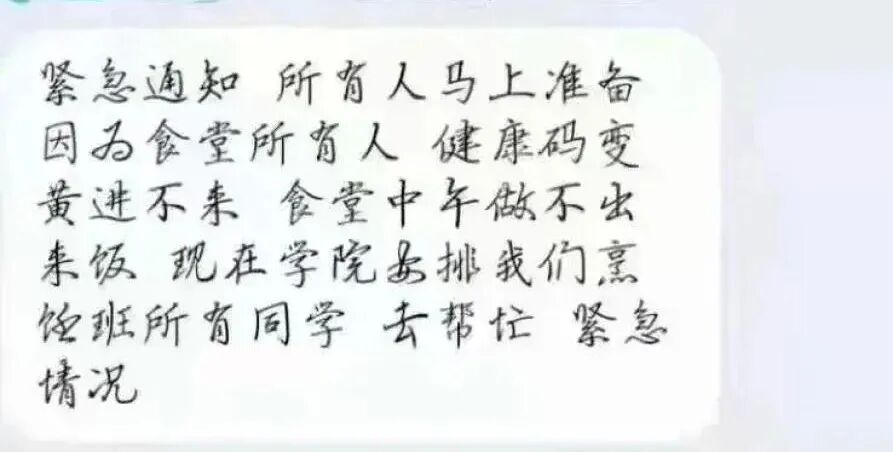 紧急通知 所有人马上准备
因为食堂所有人 健康码变
黄进不来 食堂中午做不出
来饭 现在学院安排我们烹
饪班所有同学 去帮忙 紧急
情况